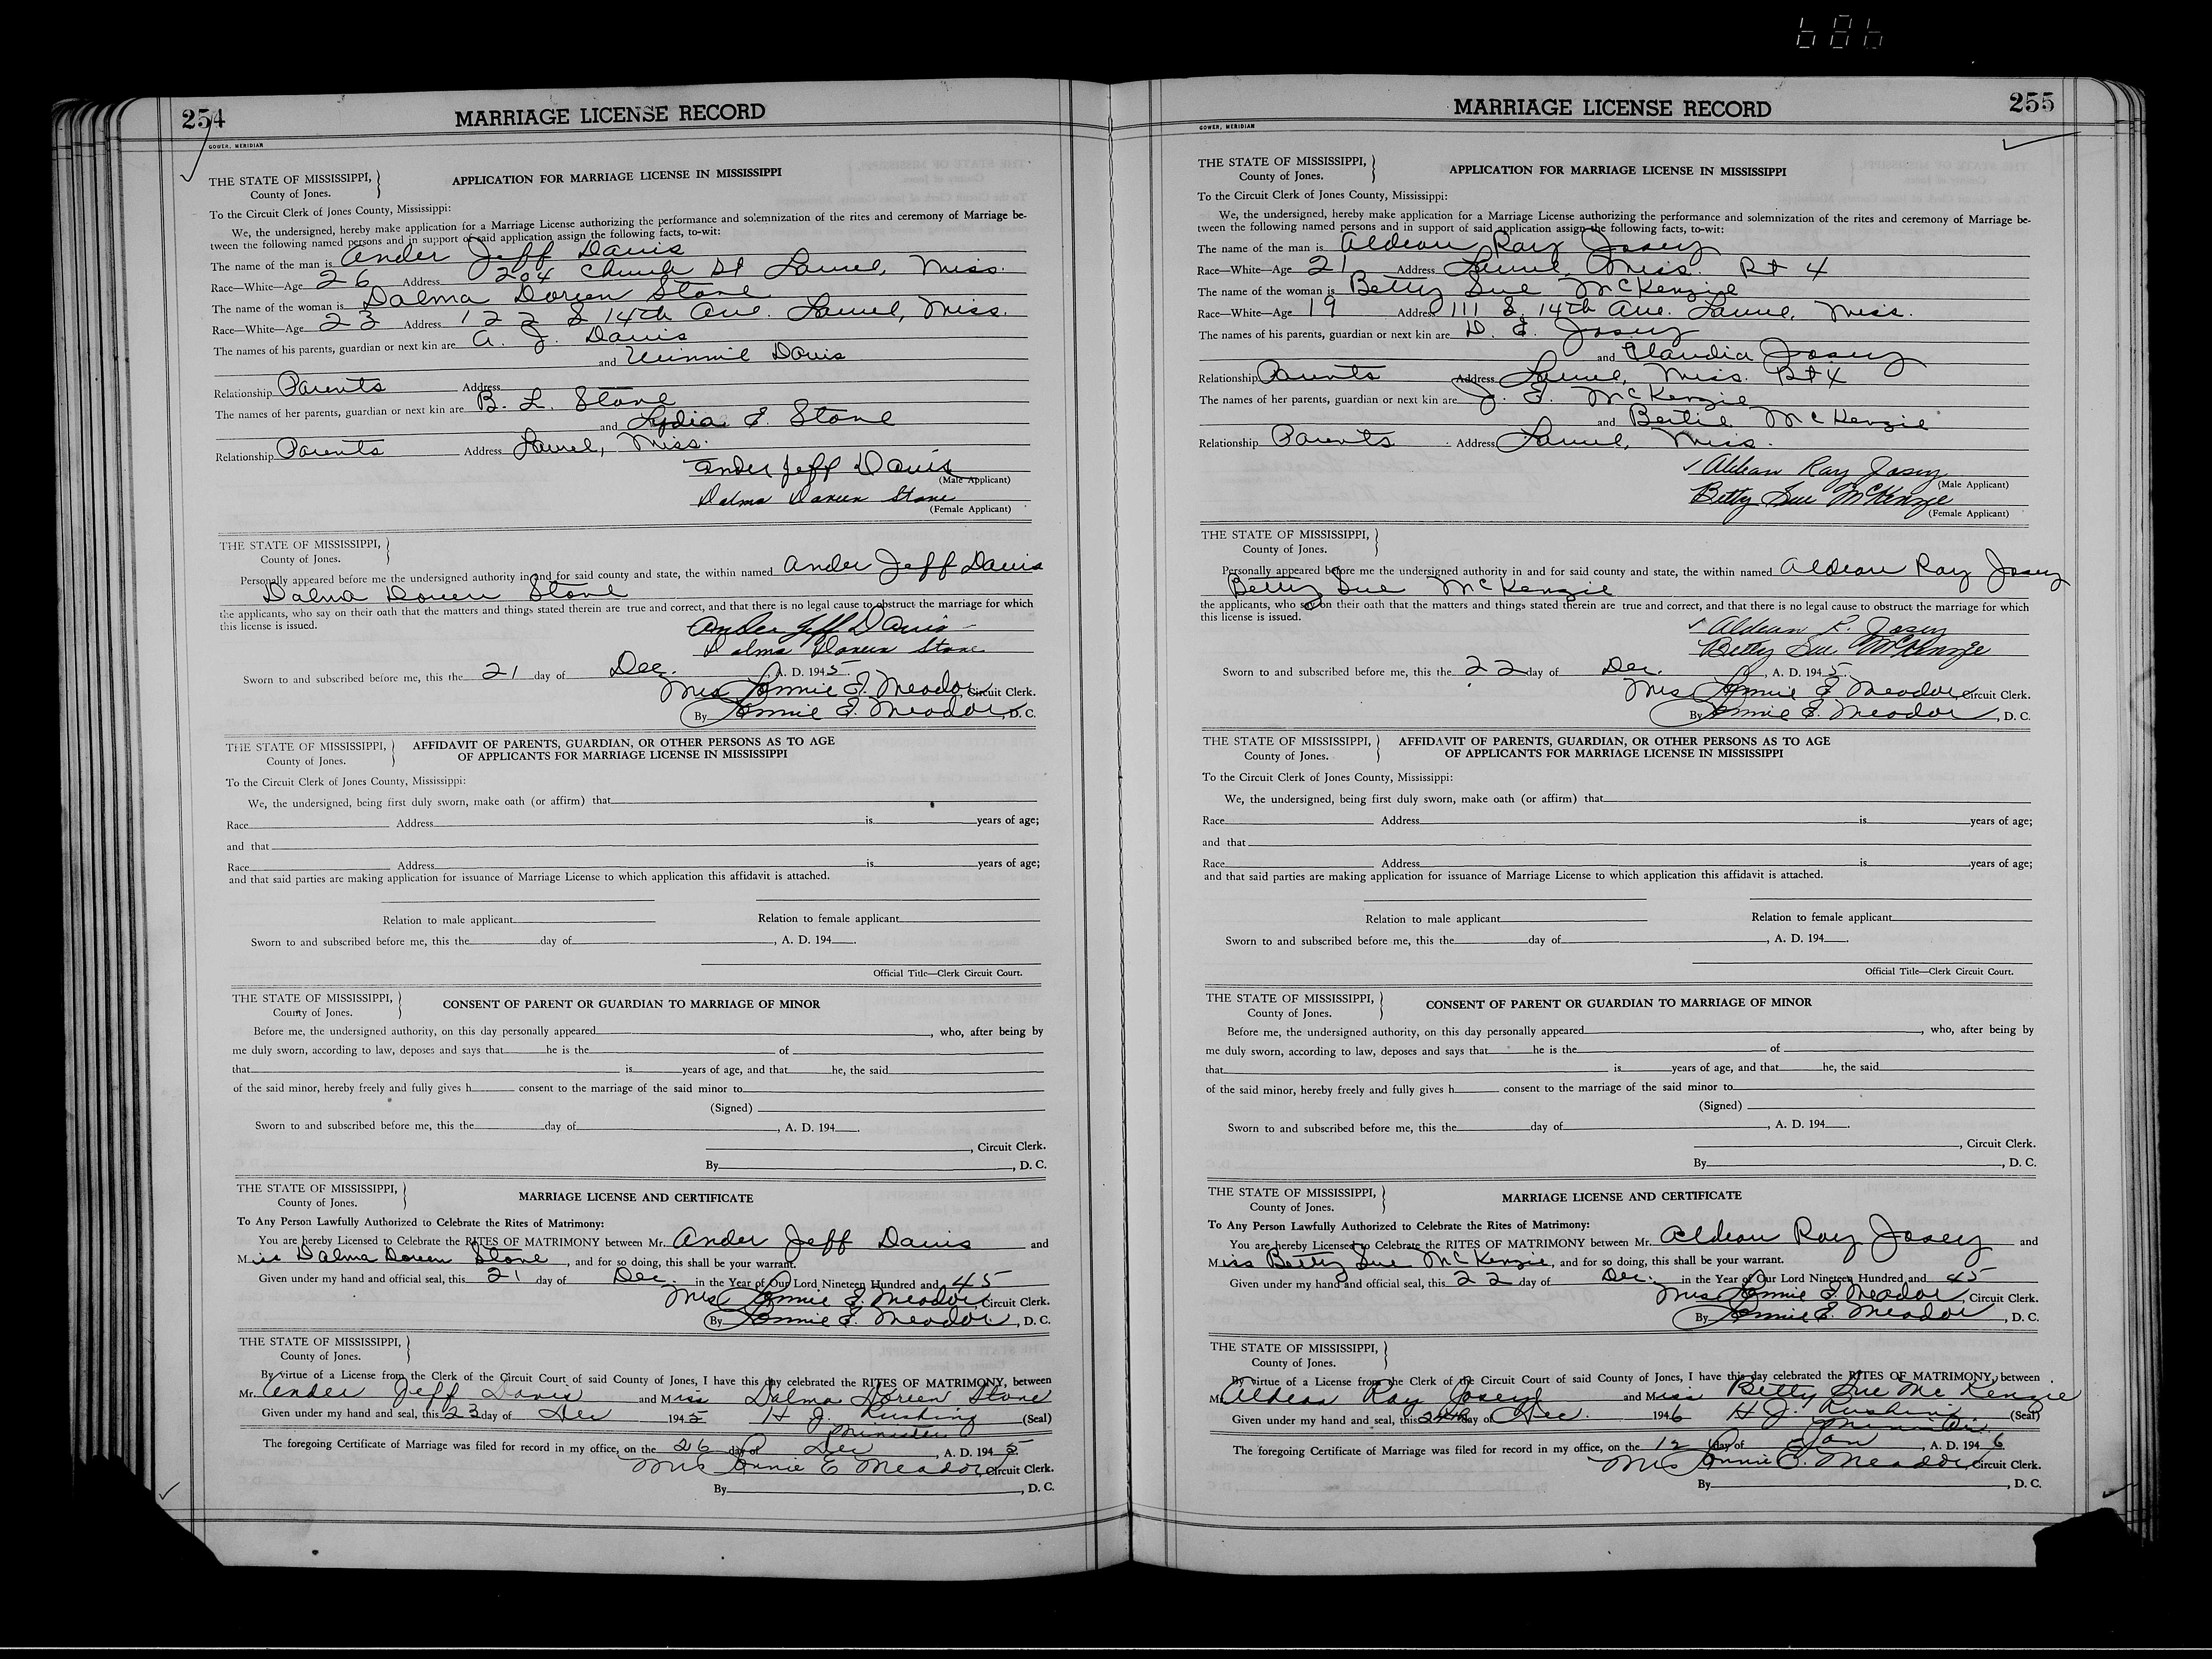 686
254
MARRIAGE LICENSE RECORD
GOWER, MERIDIAN
THE STATE OF MISSISSIPPI,
County of Jones.
APPLICATION FOR MARRIAGE LICENSE IN MISSISSIPPI
To the Circuit Clerk of Jones County, Mississippi:
We, the undersigned, hereby make application for a Marriage License authorizing the performance and solemnization of the rites and ceremony of Marriage be-
tween the following named persons and in support of said application assign the following facts, to-wit:
The name of the man is Ander Jeff Davis
Race—White—Age 26 Address 204 Church St Laurel, Miss.
The name of the woman is Dalma Doreen Stone
Race—White—Age 23 Address 122 S 14th Ave. Laurel, Miss.
The names of his parents, guardian or next kin are A. J. Davis
and Winnie Davis
Relationship Parents Address
The names of her parents, guardian or next kin are B. L. Stone
and Lydia E. Stone
Relationship Parents Address Laurel, Miss.
Ander Jeff Davis
(Male Applicant)
Dalma Doreen Stone
(Female Applicant)
THE STATE OF MISSISSIPPI,
County of Jones.
Personally appeared before me the undersigned authority in and for said county and state, the within named Ander Jeff Davis
Dalma Doreen Stone
the applicants, who say on their oath that the matters and things stated therein are true and correct, and that there is no legal cause to obstruct the marriage for which
this license is issued.
Ander Jeff Davis
Dalma Doreen Stone
Sworn to and subscribed before me, this the 21 day of Dec. A. D. 1945.
Mrs Lonnie E. Meador, Circuit Clerk.
By Lonnie E. Meador, D. C.
THE STATE OF MISSISSIPPI,
County of Jones.
AFFIDAVIT OF PARENTS, GUARDIAN, OR OTHER PERSONS AS TO AGE
OF APPLICANTS FOR MARRIAGE LICENSE IN MISSISSIPPI
To the Circuit Clerk of Jones County, Mississippi:
We, the undersigned, being first duly sworn, make oath (or affirm) that
Race Address is years of age;
and that
Race Address is years of age;
and that said parties are making application for issuance of Marriage License to which application this affidavit is attached.
Relation to male applicant Relation to female applicant
Sworn to and subscribed before me, this the day of , A. D. 194 .
Official Title—Clerk Circuit Court.
THE STATE OF MISSISSIPPI,
County of Jones.
CONSENT OF PARENT OR GUARDIAN TO MARRIAGE OF MINOR
Before me, the undersigned authority, on this day personally appeared , who, after being by
me duly sworn, according to law, deposes and says that he is the of
that is years of age, and that he, the said
of the said minor, hereby freely and fully gives h consent to the marriage of the said minor to
(Signed)
Sworn to and subscribed before me, this the day of , A. D. 194 .
, Circuit Clerk.
By , D. C.
THE STATE OF MISSISSIPPI,
County of Jones.
MARRIAGE LICENSE AND CERTIFICATE
To Any Person Lawfully Authorized to Celebrate the Rites of Matrimony:
You are hereby Licensed to Celebrate the RITES OF MATRIMONY between Mr. Ander Jeff Davis and
Miss Dalma Doreen Stone, and for so doing, this shall be your warrant.
Given under my hand and official seal, this 21 day of Dec. in the Year of Our Lord Nineteen Hundred and 45
Mrs Lonnie E. Meador, Circuit Clerk.
By Lonnie E. Meador, D. C.
THE STATE OF MISSISSIPPI,
County of Jones.
By virtue of a License from the Clerk of the Circuit Court of said County of Jones, I have this day celebrated the RITES OF MATRIMONY, between
Mr. Ander Jeff Davis and Miss Dalma Doreen Stone
Given under my hand and seal, this 23 day of Dec 1945 H J. Rushing (Seal)
Minister
The foregoing Certificate of Marriage was filed for record in my office, on the 26 day of Dec, A. D. 1945
Mrs Lonnie E Meador, Circuit Clerk.
By , D. C.
255
MARRIAGE LICENSE RECORD
GOWER, MERIDIAN
THE STATE OF MISSISSIPPI,
County of Jones.
APPLICATION FOR MARRIAGE LICENSE IN MISSISSIPPI
To the Circuit Clerk of Jones County, Mississippi:
We, the undersigned, hereby make application for a Marriage License authorizing the performance and solemnization of the rites and ceremony of Marriage be-
tween the following named persons and in support of said application assign the following facts, to-wit:
The name of the man is Aldean Ray Josey
Race—White—Age 21 Address Laurel, Miss. Rt 4
The name of the woman is Betty Sue McKenzie
Race—White—Age 19 Address 111 S. 14th Ave. Laurel, Miss.
The names of his parents, guardian or next kin are D. E. Josey
and Claudia Josey
Relationship Parents Address Laurel, Miss. Rt 4
The names of her parents, guardian or next kin are J. E. McKenzie
and Bertie McKenzie
Relationship Parents Address Laurel, Miss.
Aldean Ray Josey
(Male Applicant)
Betty Sue McKenzie
(Female Applicant)
THE STATE OF MISSISSIPPI,
County of Jones.
Personally appeared before me the undersigned authority in and for said county and state, the within named Aldean Ray Josey
Betty Sue McKenzie
the applicants, who say on their oath that the matters and things stated therein are true and correct, and that there is no legal cause to obstruct the marriage for which
this license is issued.
Aldean R. Josey
Betty Sue McKenzie
Sworn to and subscribed before me, this the 22 day of Dec. , A. D. 1945.
Mrs Lonnie E Meador, Circuit Clerk.
By Lonnie E. Meador, D. C.
THE STATE OF MISSISSIPPI,
County of Jones.
AFFIDAVIT OF PARENTS, GUARDIAN, OR OTHER PERSONS AS TO AGE
OF APPLICANTS FOR MARRIAGE LICENSE IN MISSISSIPPI
To the Circuit Clerk of Jones County, Mississippi:
We, the undersigned, being first duly sworn, make oath (or affirm) that
Race Address is years of age;
and that
Race Address is years of age;
and that said parties are making application for issuance of Marriage License to which application this affidavit is attached.
Relation to male applicant Relation to female applicant
Sworn to and subscribed before me, this the day of , A. D. 194 .
Official Title—Clerk Circuit Court.
THE STATE OF MISSISSIPPI,
County of Jones.
CONSENT OF PARENT OR GUARDIAN TO MARRIAGE OF MINOR
Before me, the undersigned authority, on this day personally appeared , who, after being by
me duly sworn, according to law, deposes and says that he is the of
that is years of age, and that he, the said
of the said minor, hereby freely and fully gives h consent to the marriage of the said minor to
(Signed)
Sworn to and subscribed before me, this the day of , A. D. 194 .
, Circuit Clerk.
By , D. C.
THE STATE OF MISSISSIPPI,
County of Jones.
MARRIAGE LICENSE AND CERTIFICATE
To Any Person Lawfully Authorized to Celebrate the Rites of Matrimony:
You are hereby Licensed to Celebrate the RITES OF MATRIMONY between Mr. Aldean Ray Josey and
Miss Betty Sue McKenzie, and for so doing, this shall be your warrant.
Given under my hand and official seal, this 22 day of Dec. in the Year of Our Lord Nineteen Hundred and 45
Mrs Lonnie E. Meador, Circuit Clerk.
By Lonnie E. Meador, D. C.
THE STATE OF MISSISSIPPI,
County of Jones.
By virtue of a License from the Clerk of the Circuit Court of said County of Jones, I have this day celebrated the RITES OF MATRIMONY, between
M Aldean Ray Josey and Miss Betty Sue Mc Kenzie
Given under my hand and seal, this 24th day of Dec. 1946 H J. Rushing (Seal)
Minister
The foregoing Certificate of Marriage was filed for record in my office, on the 12 day of Jan, A. D. 1946
Mrs Lonnie E. Meador, Circuit Clerk.
By , D. C.